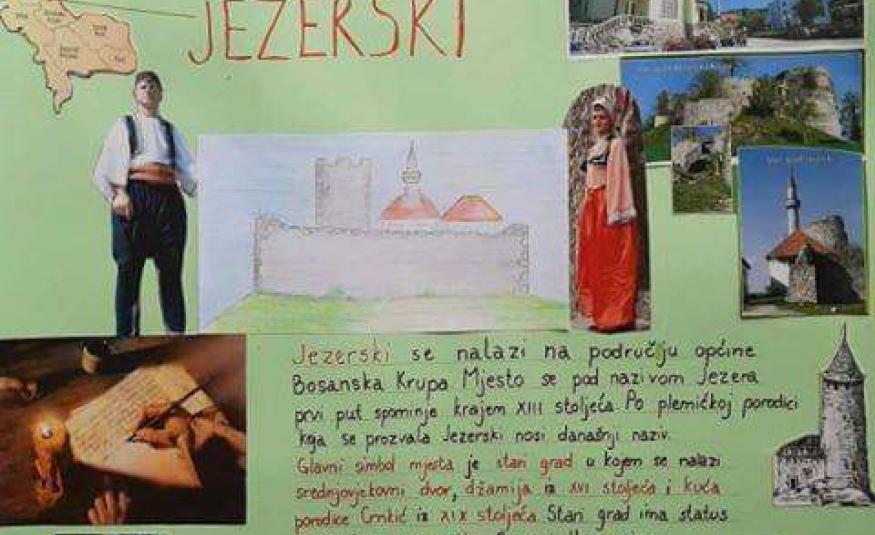 JEZERSKI
Jezerski se nalazi na području općine
Bosanska Krupa Mjesto se pod nazivom Jezera
prvi put spominje krajem XIII stoljeća. Po plemićkoj porodici
koja se prozvala Jezerski nosi današnji naziv.
Glavni simbol mjesta je stari grad u kojem se nalazi
srednjovjekovni dvor, džamija iz XVI stoljeća i kuća
porodice Crnkić iz XIX stoljeća Stari grad ima status